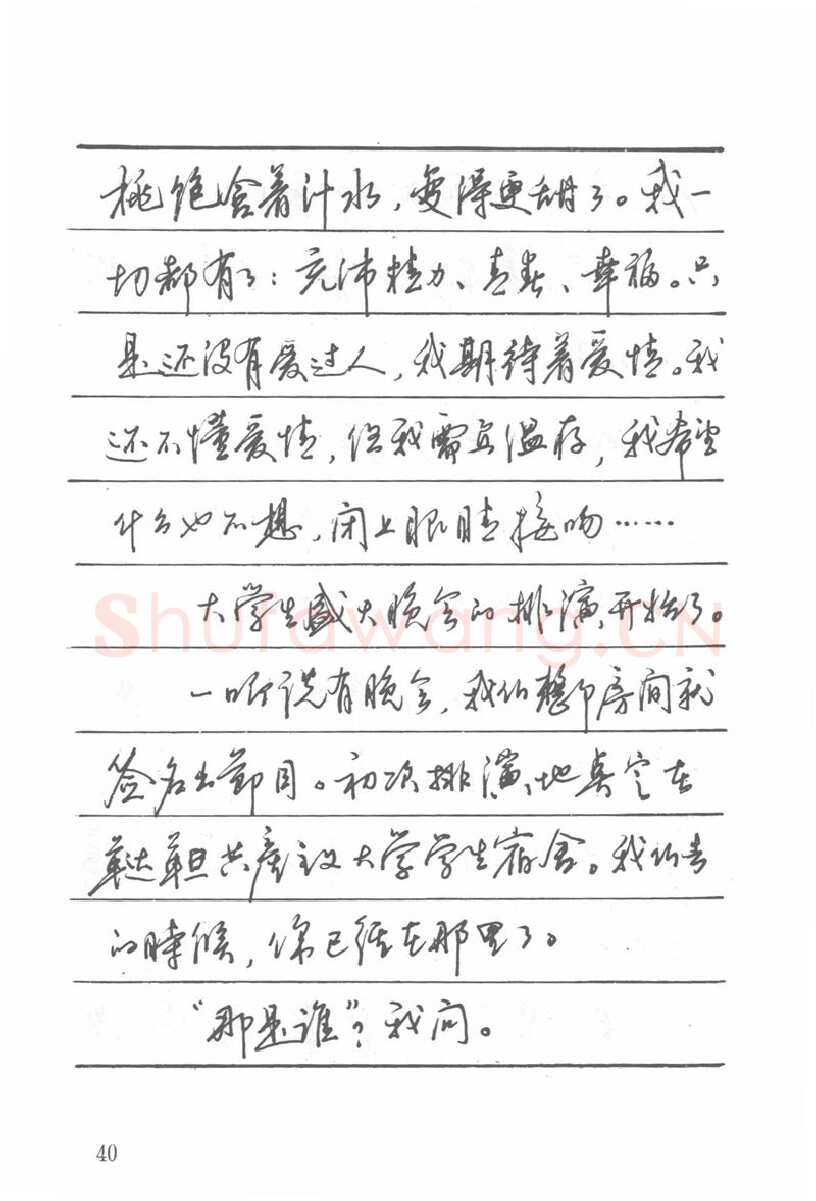 桃饱含着汁水，变得更甜了。我一
切都有了：充沛精力、青春、幸福。只
是还没有爱过人，我期待着爱情。我
还不懂爱情，但我需要温存，我希望
什么也不想，闭上眼睛接吻……
大学生盛大晚会的排演开始了。
一听说有晚会，我们整个房间就
签名出節目。初次排演，地点定在
鞑靼共產主义大学学生宿舍。我们去
的時候，你已经在那里了。
“那是谁”？我问。
40
Shufawang.CN